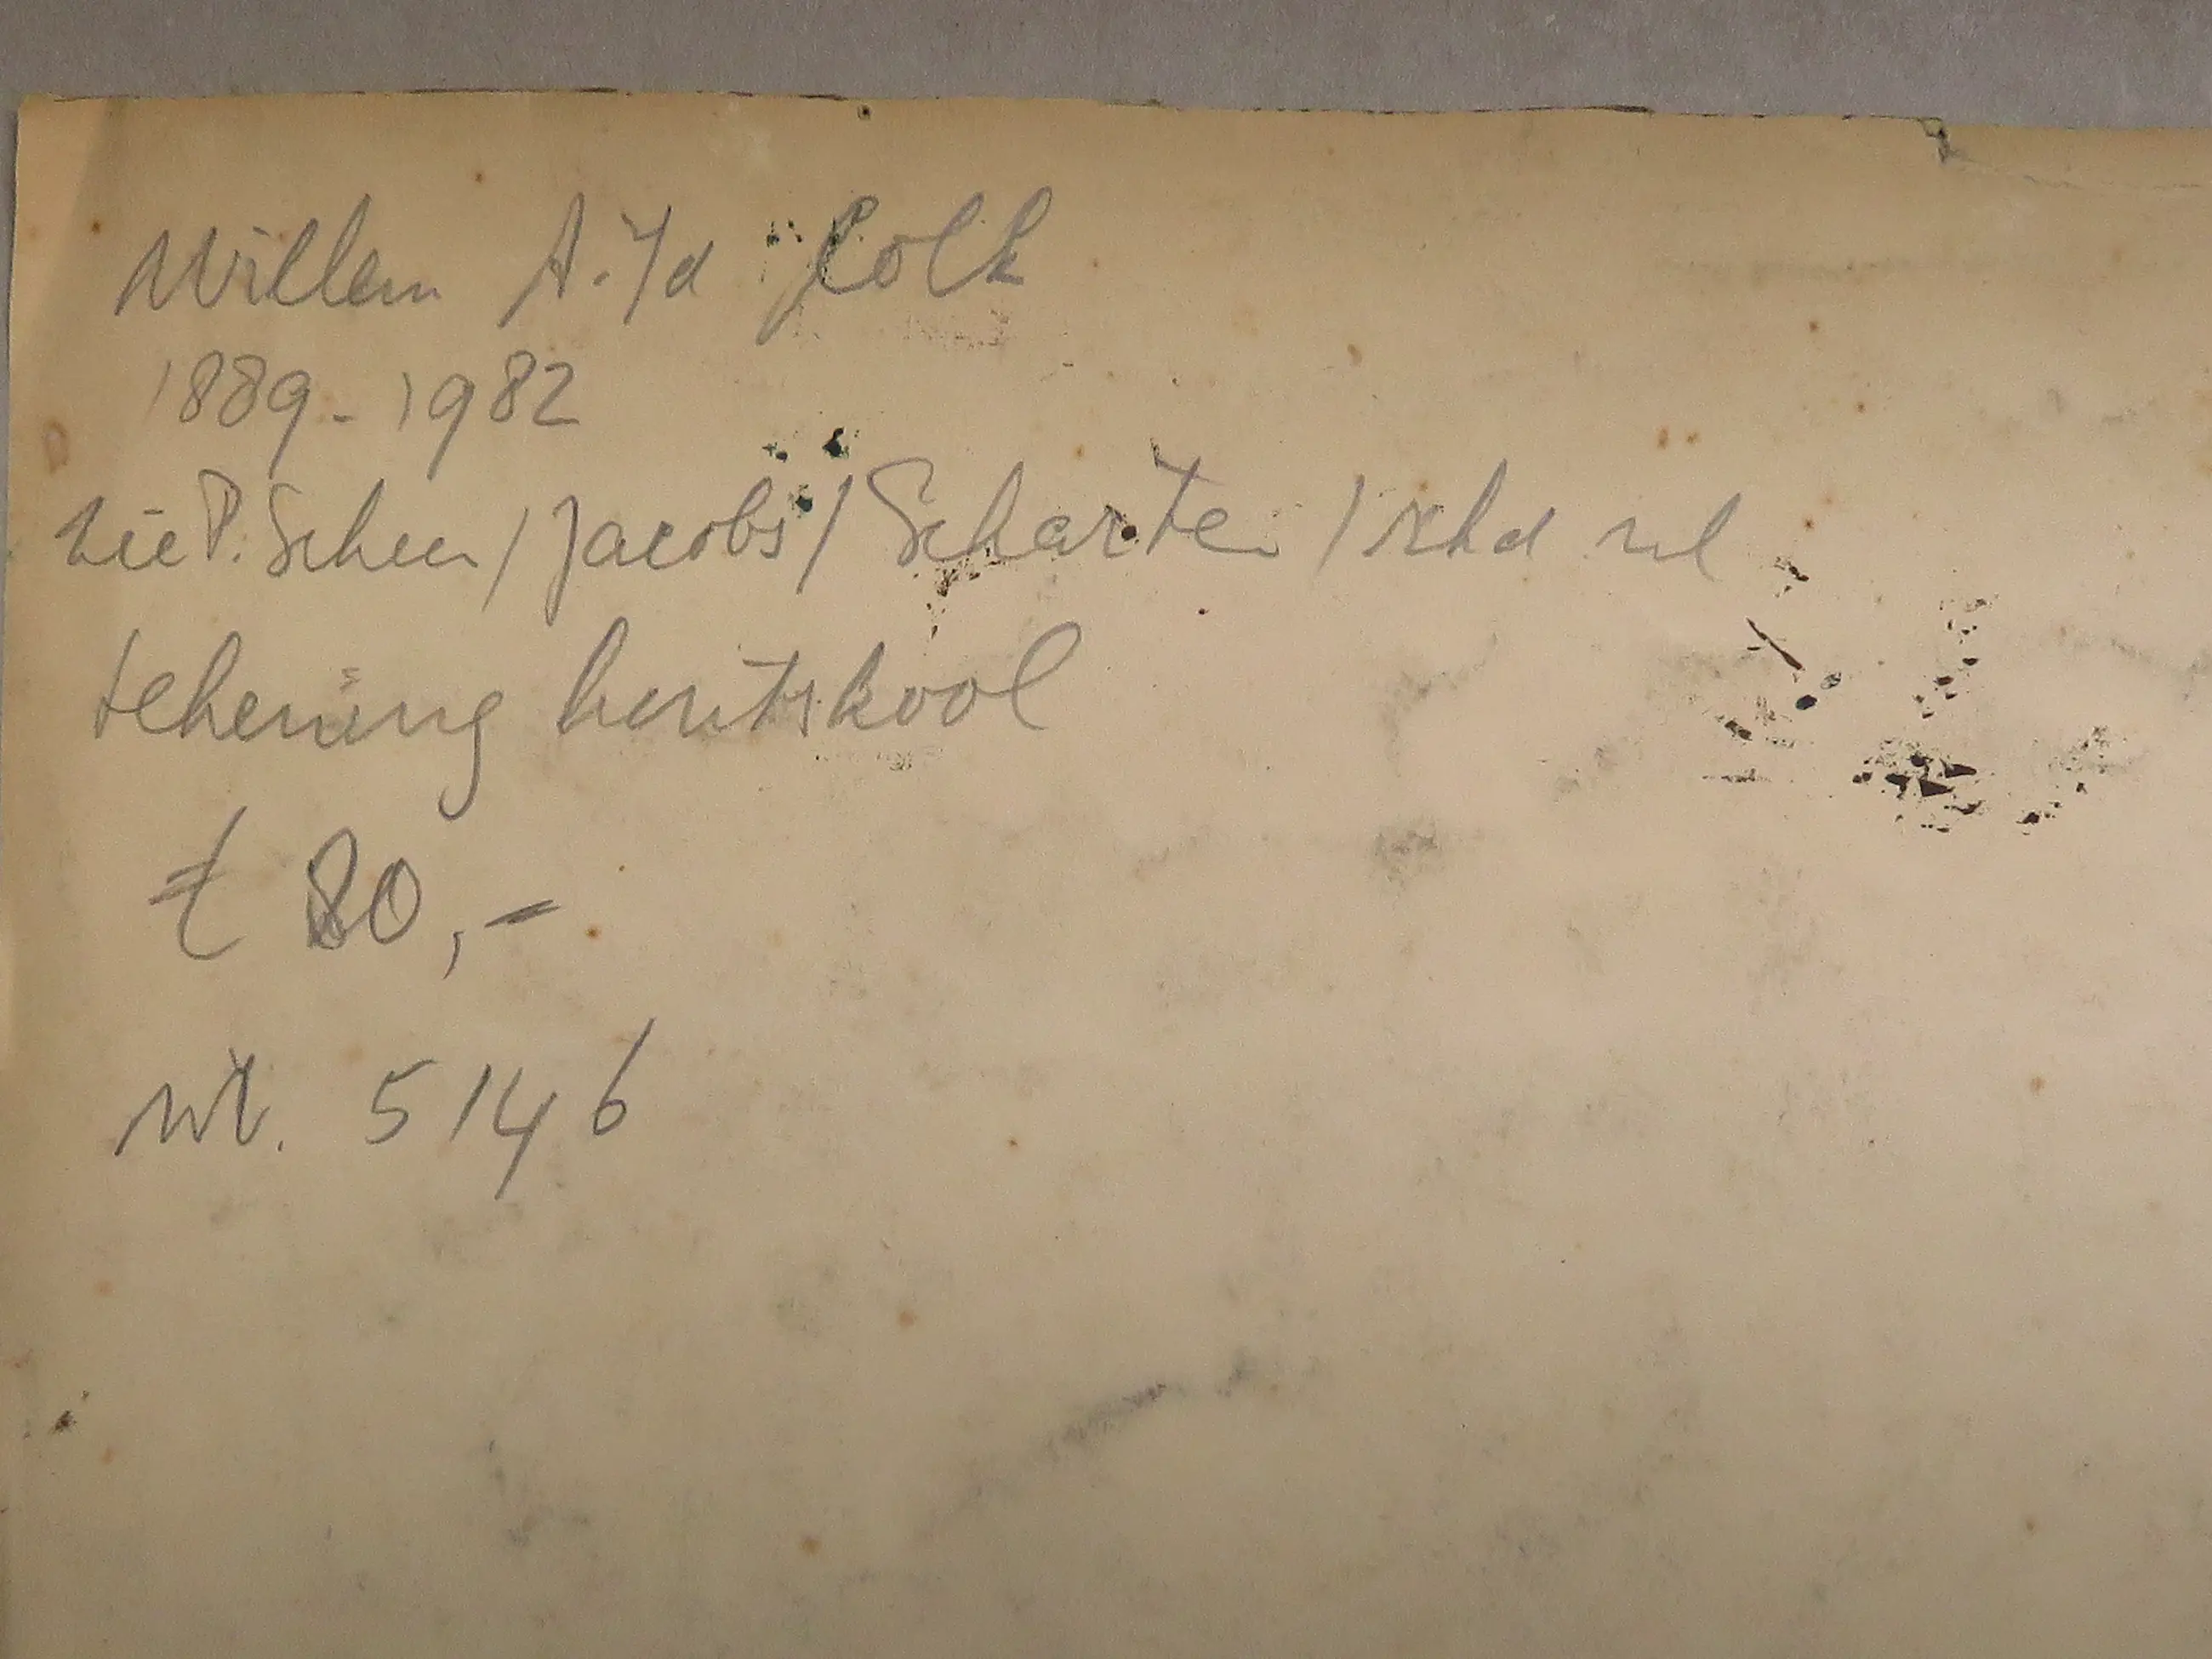 Willem A. v/d Colk
1889-1982
zie P. Scheen / Jacobs / Scharten / rkd nl
tekening houtskool
€ 80,-
nr. 5146